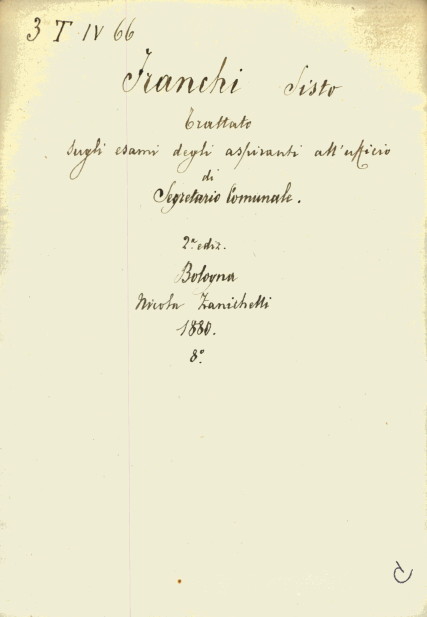 3 T IV 66
Franchi Sisto
Trattato
sugli esami degli aspiranti all'ufficio
di
Segretario Comunale.
2ª ediz.
Bologna
Nicola Zanichelli
1880.
8º